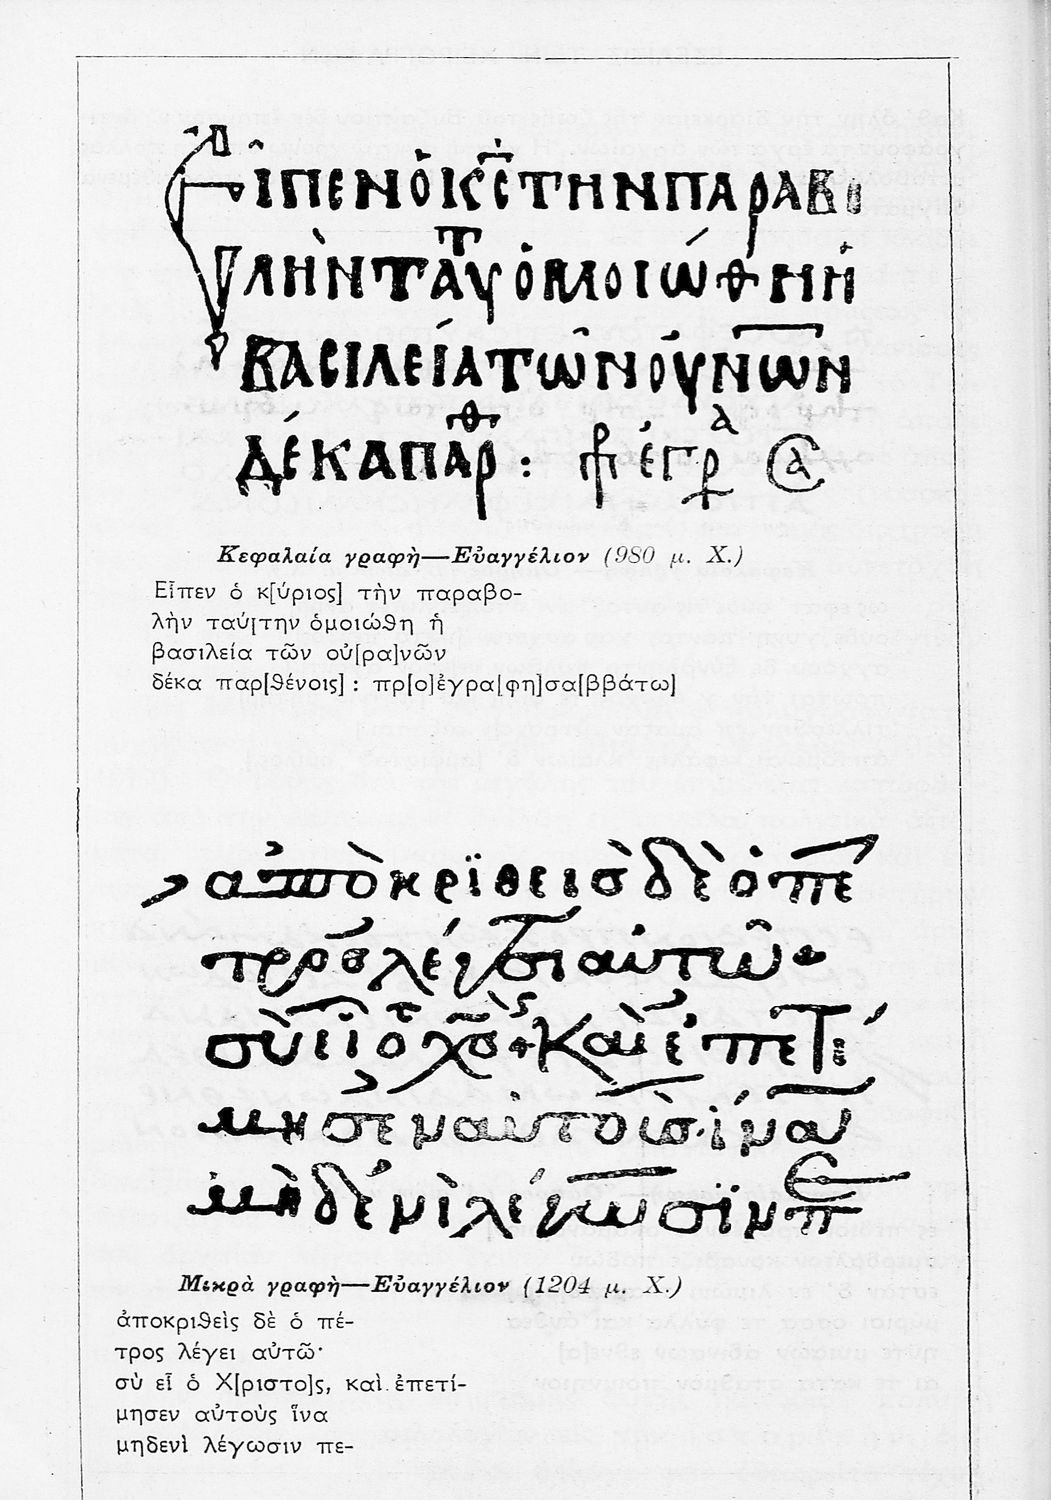 ΕἶΠΕΝ Ὁ Κ̅Ϲ̅ ΤΗΝ ΠΑΡΑΒΟ
ΛῊΝ ΤΑΥΤ ὉΜΟΙΏΘΗ Ἡ
ΒΑϹΙΛΕΊΑ ΤΩ͂Ν ΟΥ̓Ν͞ΩΝ
ΔΈΚΑ ΠΑΡΘ : πρ ἐγρα σα
Κεφαλαία γραφὴ—Εὐαγγέλιον (980 μ. Χ.)
Εἶπεν ὁ κ[ύριος] τὴν παραβο-
λὴν ταύ[την ὁμοιώθη ἡ
βασιλεία τῶν οὐ[ρα]νῶν
δέκα παρ[θένοις] : πρ[ο]ἐγρα[φη]σα[ββάτω]
ἀποκριθεὶσ δὲ ὁ πέ
τροσ λέγει αὐτῶ·
σὺ εἶ ὁ χσ̅ καὶ ἐπετί
μησεν αὐτοὺσ ἵνα
μηδενὶ λέγωσιν π
Μικρὰ γραφὴ—Εὐαγγέλιον (1204 μ. Χ.)
ἀποκριθεὶς δὲ ὁ πέ-
τρος λέγει αὐτῶ·
σὺ εἶ ὁ Χ[ριστο]ς, καὶ ἐπετί-
μησεν αὐτοὺς ἵνα
μηδενὶ λέγωσιν πε-